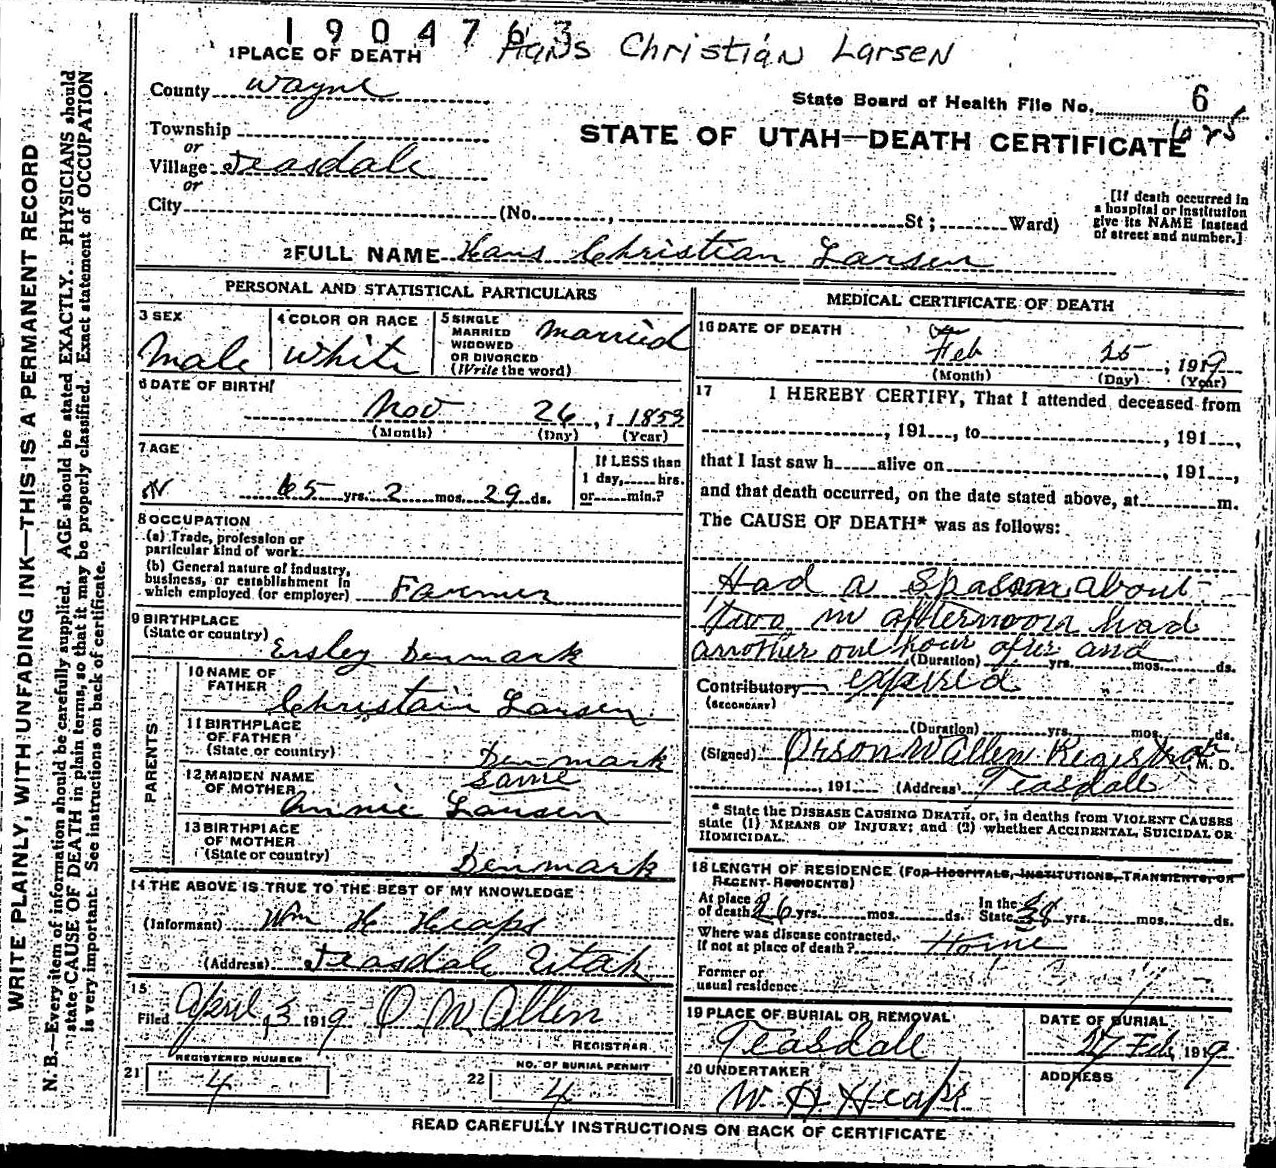 1904763
Hans Christian Larsen
1 PLACE OF DEATH
County Wayne
State Board of Health File No. 6
Township
or
Village Teasdale
or
City (No. , St; Ward)
STATE OF UTAH—DEATH CERTIFICATE
[If death occurred in
a hospital or institution
give its NAME instead
of street and number.]
2 FULL NAME Hans Christian Larsen
PERSONAL AND STATISTICAL PARTICULARS
3 SEX
Male
4 COLOR OR RACE
White
5 SINGLE
MARRIED
WIDOWED
OR DIVORCED
(Write the word)
Married
6 DATE OF BIRTH
Nov 26, 1 1853
(Month) (Day) (Year)
7 AGE
65 yrs. 2 mos. 29 ds.
If LESS than
1 day, hrs.
or min.?
8 OCCUPATION
(a) Trade, profession or
particular kind of work
(b) General nature of industry,
business, or establishment in
which employed (or employer) Farmer
9 BIRTHPLACE
(State or country) Ersley Denmark
PARENTS
10 NAME OF
FATHER
Christain Larsen
11 BIRTHPLACE
OF FATHER
(State or country) Denmark
12 MAIDEN NAME
OF MOTHER
same
Annie Larsen
13 BIRTHPLACE
OF MOTHER
(State or country)
Denmark
14 THE ABOVE IS TRUE TO THE BEST OF MY KNOWLEDGE
(Informant) Wm H Heaps
(Address) Teasdale Utah
15
Filed April 3 1919 O W Allen
REGISTRAR
21 REGISTERED NUMBER
4
22 NO. OF BURIAL PERMIT
4
MEDICAL CERTIFICATE OF DEATH
16 DATE OF DEATH
Feb 25, 1919
(Month) (Day) (Year)
17 I HEREBY CERTIFY, That I attended deceased from
, 191 , to , 191 ,
that I last saw h alive on , 191 ,
and that death occurred, on the date stated above, at m.
The CAUSE OF DEATH* was as follows:
Had a Spasom about
two in afternoon had
another one hour after and
(Duration) yrs. mos. ds.
Contributory expired
(SECONDARY)
(Duration) yrs. mos. ds.
(Signed) Orson W Allen Registrar M. D.
, 191 (Address) Teasdale
* State the DISEASE CAUSING DEATH, or, in deaths from VIOLENT CAUSES
state (1) MEANS OF INJURY; and (2) whether ACCIDENTAL, SUICIDAL OR
HOMICIDAL.
18 LENGTH OF RESIDENCE (FOR HOSPITALS, INSTITUTIONS, TRANSIENTS, OR
RECENT RESIDENTS)
At place
of death 26 yrs. mos. ds.
In the
State 38 yrs. mos. ds.
Where was disease contracted,
if not at place of death? Home
Former or
usual residence
19 PLACE OF BURIAL OR REMOVAL
Teasdale
DATE OF BURIAL
27 Feb, 1919
20 UNDERTAKER
W H Heaps
ADDRESS
READ CAREFULLY INSTRUCTIONS ON BACK OF CERTIFICATE
WRITE PLAINLY, WITH UNFADING INK—THIS IS A PERMANENT RECORD
N. B.—Every item of information should be carefully supplied. AGE should be stated EXACTLY. PHYSICIANS should
state CAUSE OF DEATH in plain terms, so that it may be properly classified. Exact statement of OCCUPATION
is very important. See instructions on back of certificate.